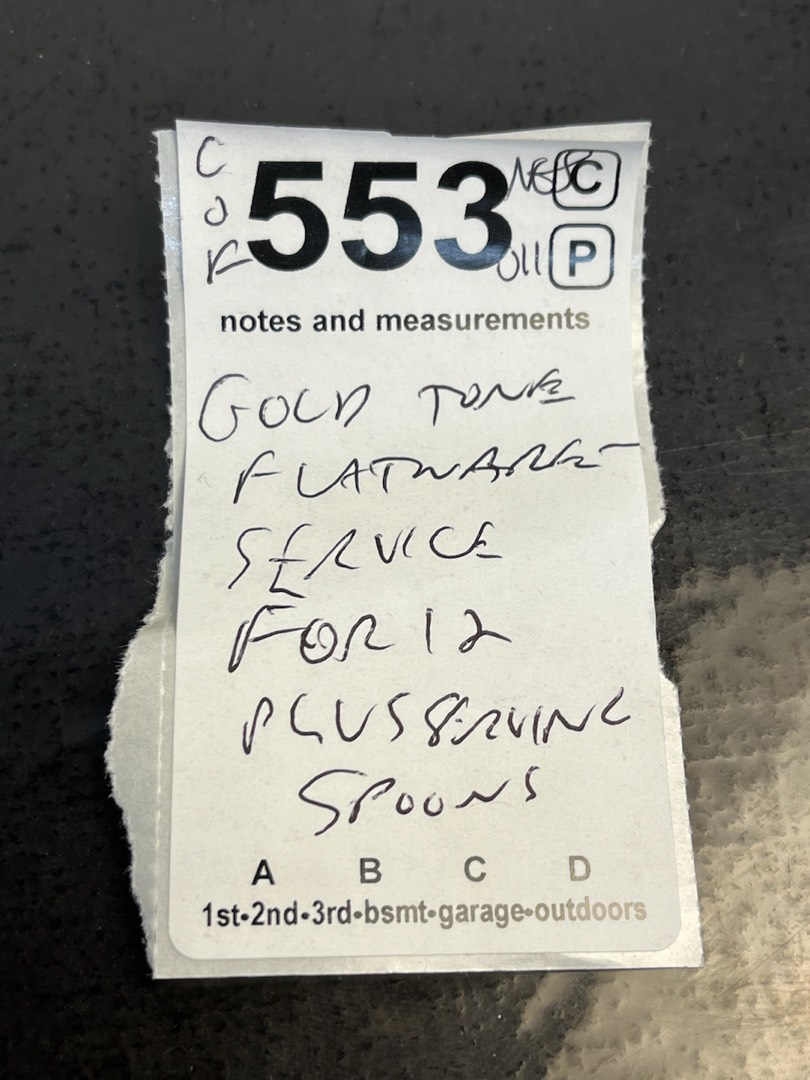 C
O
F
553
C
011
P
notes and measurements
GOLD TONE
FLATWARE-
SERVICE
FOR 12
PLUS SERVING
SPOONS
A B C D
1st•2nd•3rd•bsmt•garage•outdoors